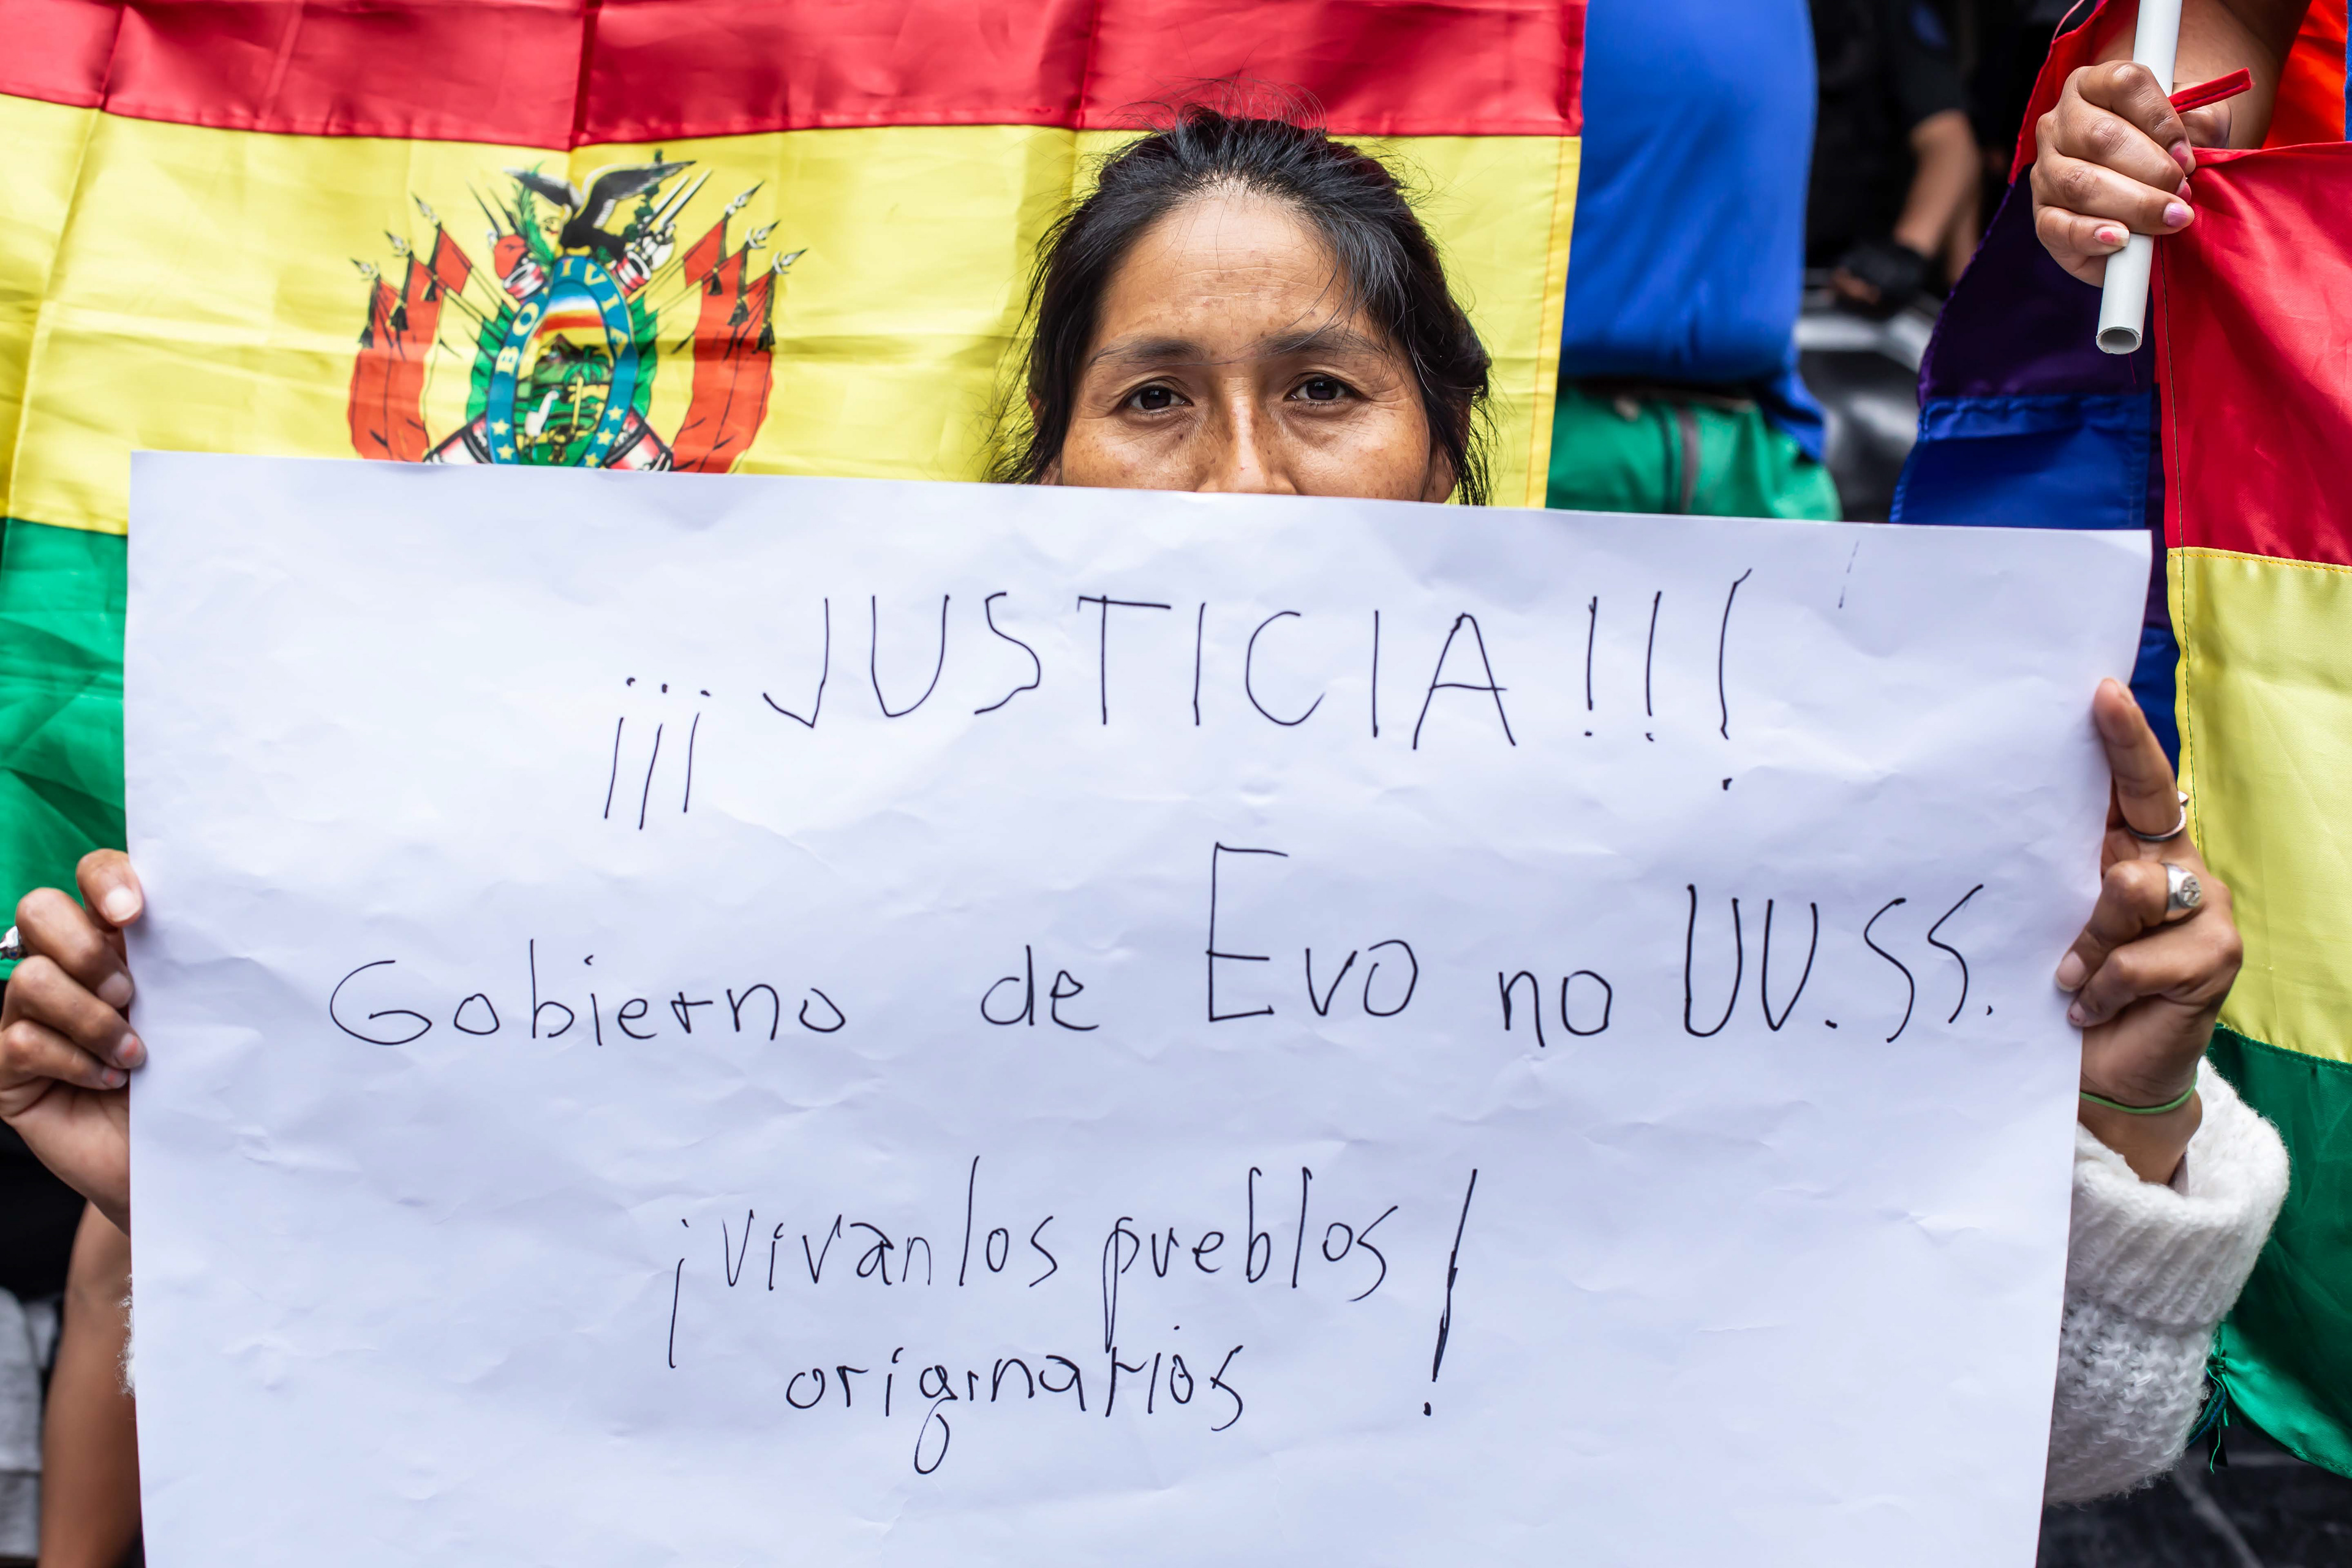 BOLIVIA
¡¡¡JUSTICIA!!!
Gobierno de Evo no UU.SS.
¡Vivan los pueblos
originarios!